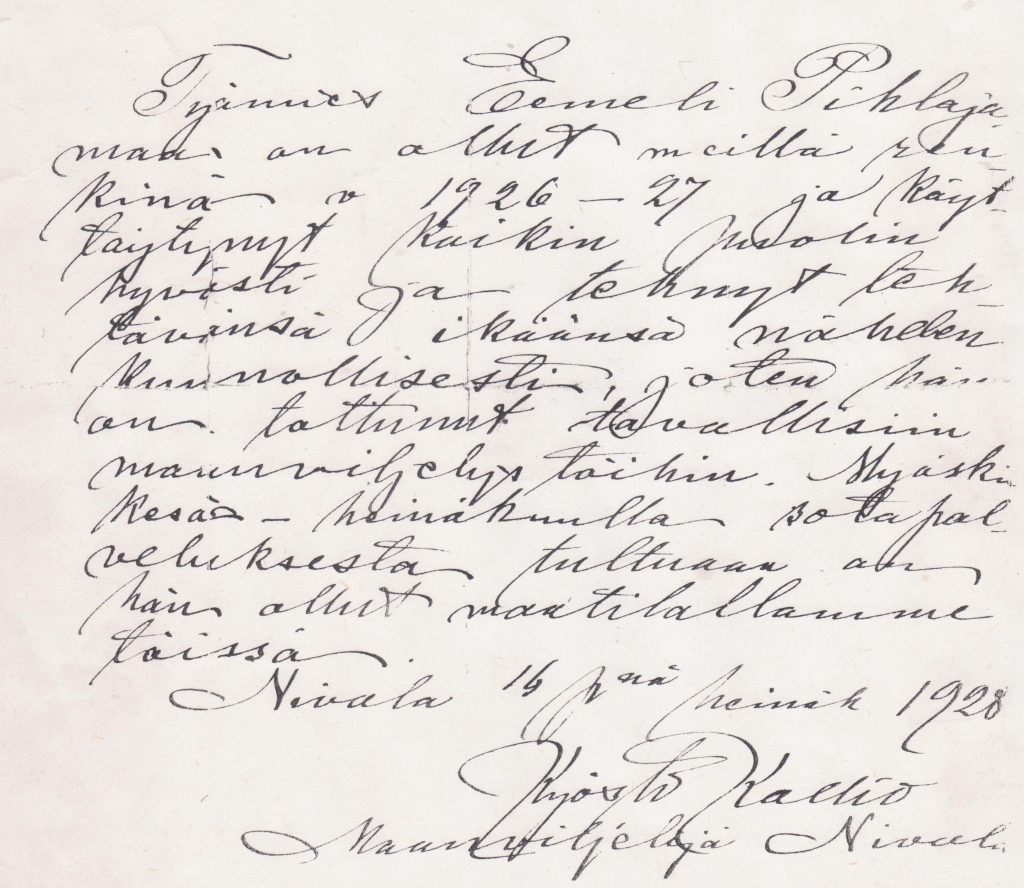 Työmies Eemeli Pihlaja-
maa on ollut meillä ren-
kinä v 1926 – 27 ja käyt-
täytynyt kaikin puolin
hyvästi ja tehnyt teh-
tävänsä ikäänsä nähden
kunnollisesti, joten hän
on tottunut tavallisiin
maanviljelys töihin. Myöskin
kesä – heinäkuulla sotapal-
veluksesta tultuaan on
hän ollut maatilallamme
töissä.
Nivala 16 pnä heinäk 1928
Kyösti Kallio
Maanviljelijä Nivala